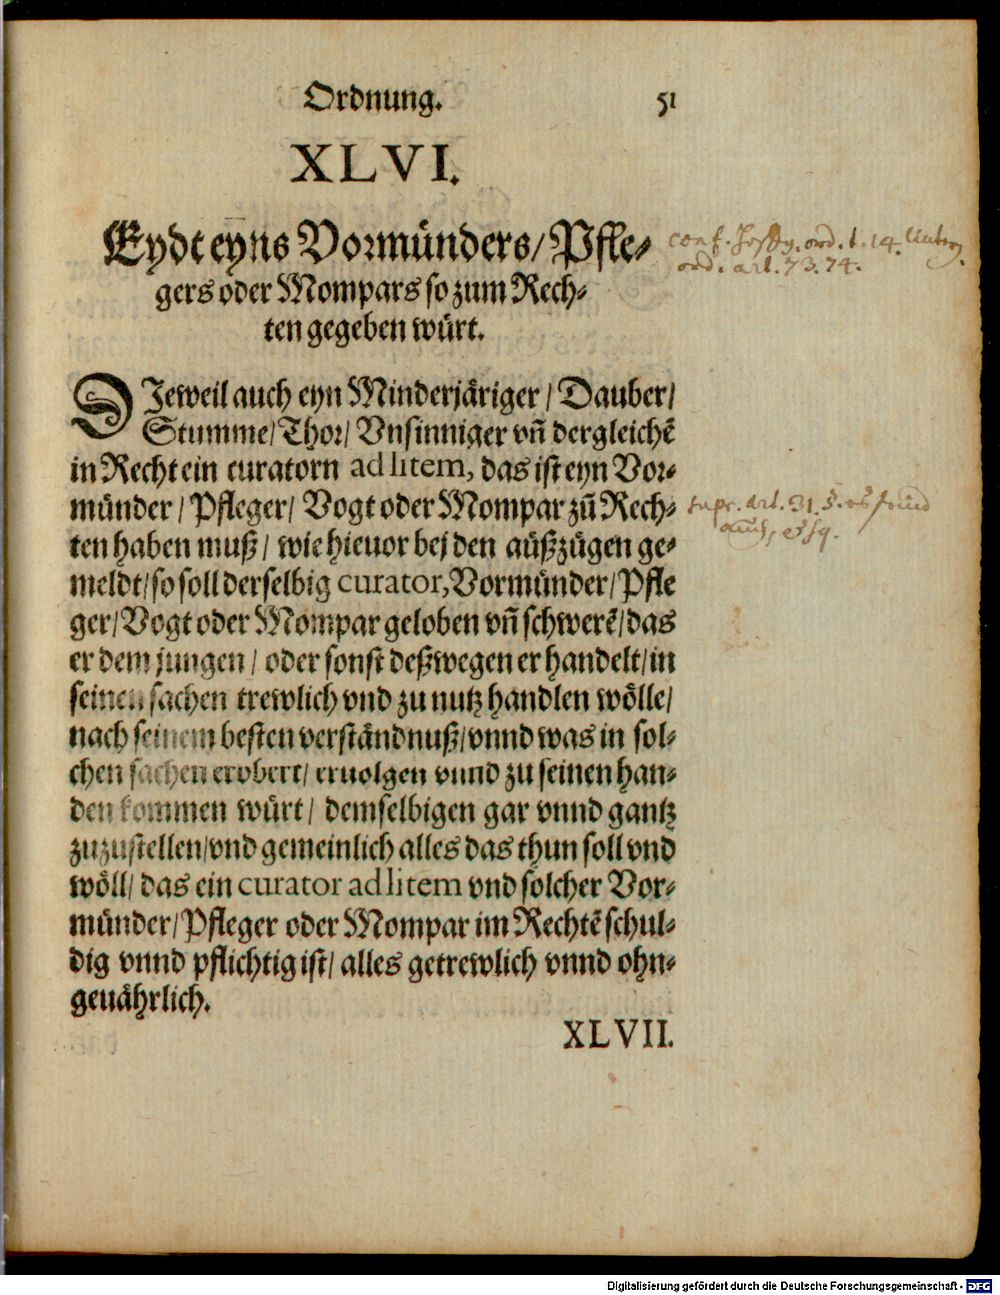 Ordnung. 51
XLVI.
Eydt eyns Vormünders/ Pfle-
gers oder Mompars so zum Rech-
ten gegeben würt.
DJeweil auch eyn Minderjäriger/ Dauber/
Stumme/ Thor/ Vnsinniger vñ dergleichẽ
in Recht ein curatorn ad litem, das ist eyn Vor-
münder/ Pfleger/ Vogt oder Mompar zũ Rech-
ten haben muß/ wie hieuor bej den außzügen ge-
meldt/ so soll derselbig curator, Vormünder/ Pfle
ger/ Vogt oder Mompar geloben vñ schwerẽ/ das
er dem jungen/ oder sonst deßwegen er handelt/ in
seinen sachen trewlich vnd zu nutz handlen wölle/
nach seinem besten verständnuß/ vnnd was in sol-
chen sachen erobert/ eruolgen vnnd zu seinen han-
den kommen würt/ demselbigen gar vnnd gantz
zuzustellen/ vnd gemeinlich alles das thun soll vnd
wöll/ das ein curator ad litem vnd solcher Vor-
münder/ Pfleger oder Mompar im Rechtẽ schul-
dig vnnd pflichtig ist/ alles getrewlich vnnd ohn-
geuährlich.
XLVII.
conf. ord. t. 14.
ord. art. 73. 74.
supr. art. 31. §.
Digitalisierung gefördert durch die Deutsche Forschungsgemeinschaft - DFG